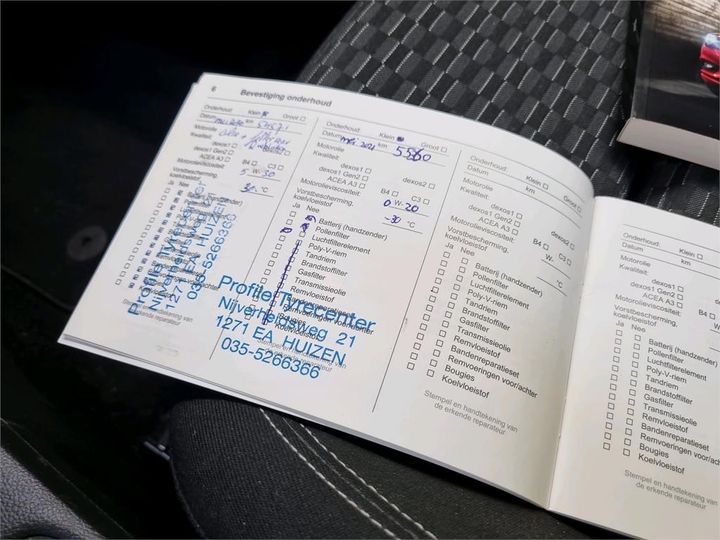 6 Bevestiging onderhoud
Onderhoud: Klein Groot
Datum km
Motorolie
Kwaliteit:
dexos1
dexos1 Gen2
ACEA A3 B4 C3
Motorolieviscositeit:
5 W-30
Vorstbescherming,
koelvloeistof
30 °C
Ja Nee
Batterij (handzender)
Pollenfilter
Profile Tyrecenter
Nijverheidsweg 21
1271 EA HUIZEN
035-5266366
Onderhoud: Klein Groot
Datum mei 2021 5560
Motorolie
Kwaliteit:
dexos1 dexos2
dexos1 Gen2
ACEA A3 B4 C3
Motorolieviscositeit:
0 W-20
Vorstbescherming,
koelvloeistof
-30 °C
Ja Nee
Batterij (handzender)
Pollenfilter
Luchtfilterelement
Poly-V-riem
Tandriem
Brandstoffilter
Gasfilter
Transmissieolie
Remvloeistof
Profile Tyrecenter
Nijverheidsweg 21
1271 EA HUIZEN
035-5266366
Stempel en handtekening van
de erkende reparateur
Onderhoud: Klein Groot
Datum km
Motorolie
Kwaliteit:
dexos1 dexos2
dexos1 Gen2
ACEA A3 B4 C3
Motorolieviscositeit:
W-
Vorstbescherming,
koelvloeistof
°C
Ja Nee
Batterij (handzender)
Pollenfilter
Luchtfilterelement
Poly-V-riem
Tandriem
Brandstoffilter
Gasfilter
Transmissieolie
Remvloeistof
Bandenreparatieset
Remvoeringen voor/achter
Bougies
Koelvloeistof
Stempel en handtekening van
de erkende reparateur
Onderhoud: Klein
Datum km
Motorolie
Kwaliteit:
dexos1
dexos1 Gen2
ACEA A3
Motorolieviscositeit:
Vorstbescherming,
koelvloeistof
Ja Nee
Batterij (handzender)
Pollenfilter
Luchtfilterelement
Poly-V-riem
Tandriem
Brandstoffilter
Gasfilter
Transmissieolie
Remvloeistof
Bandenreparatieset
Remvoeringen voor/achter
Bougies
Koelvloeistof
Stempel en handtekening van
de erkende reparateur